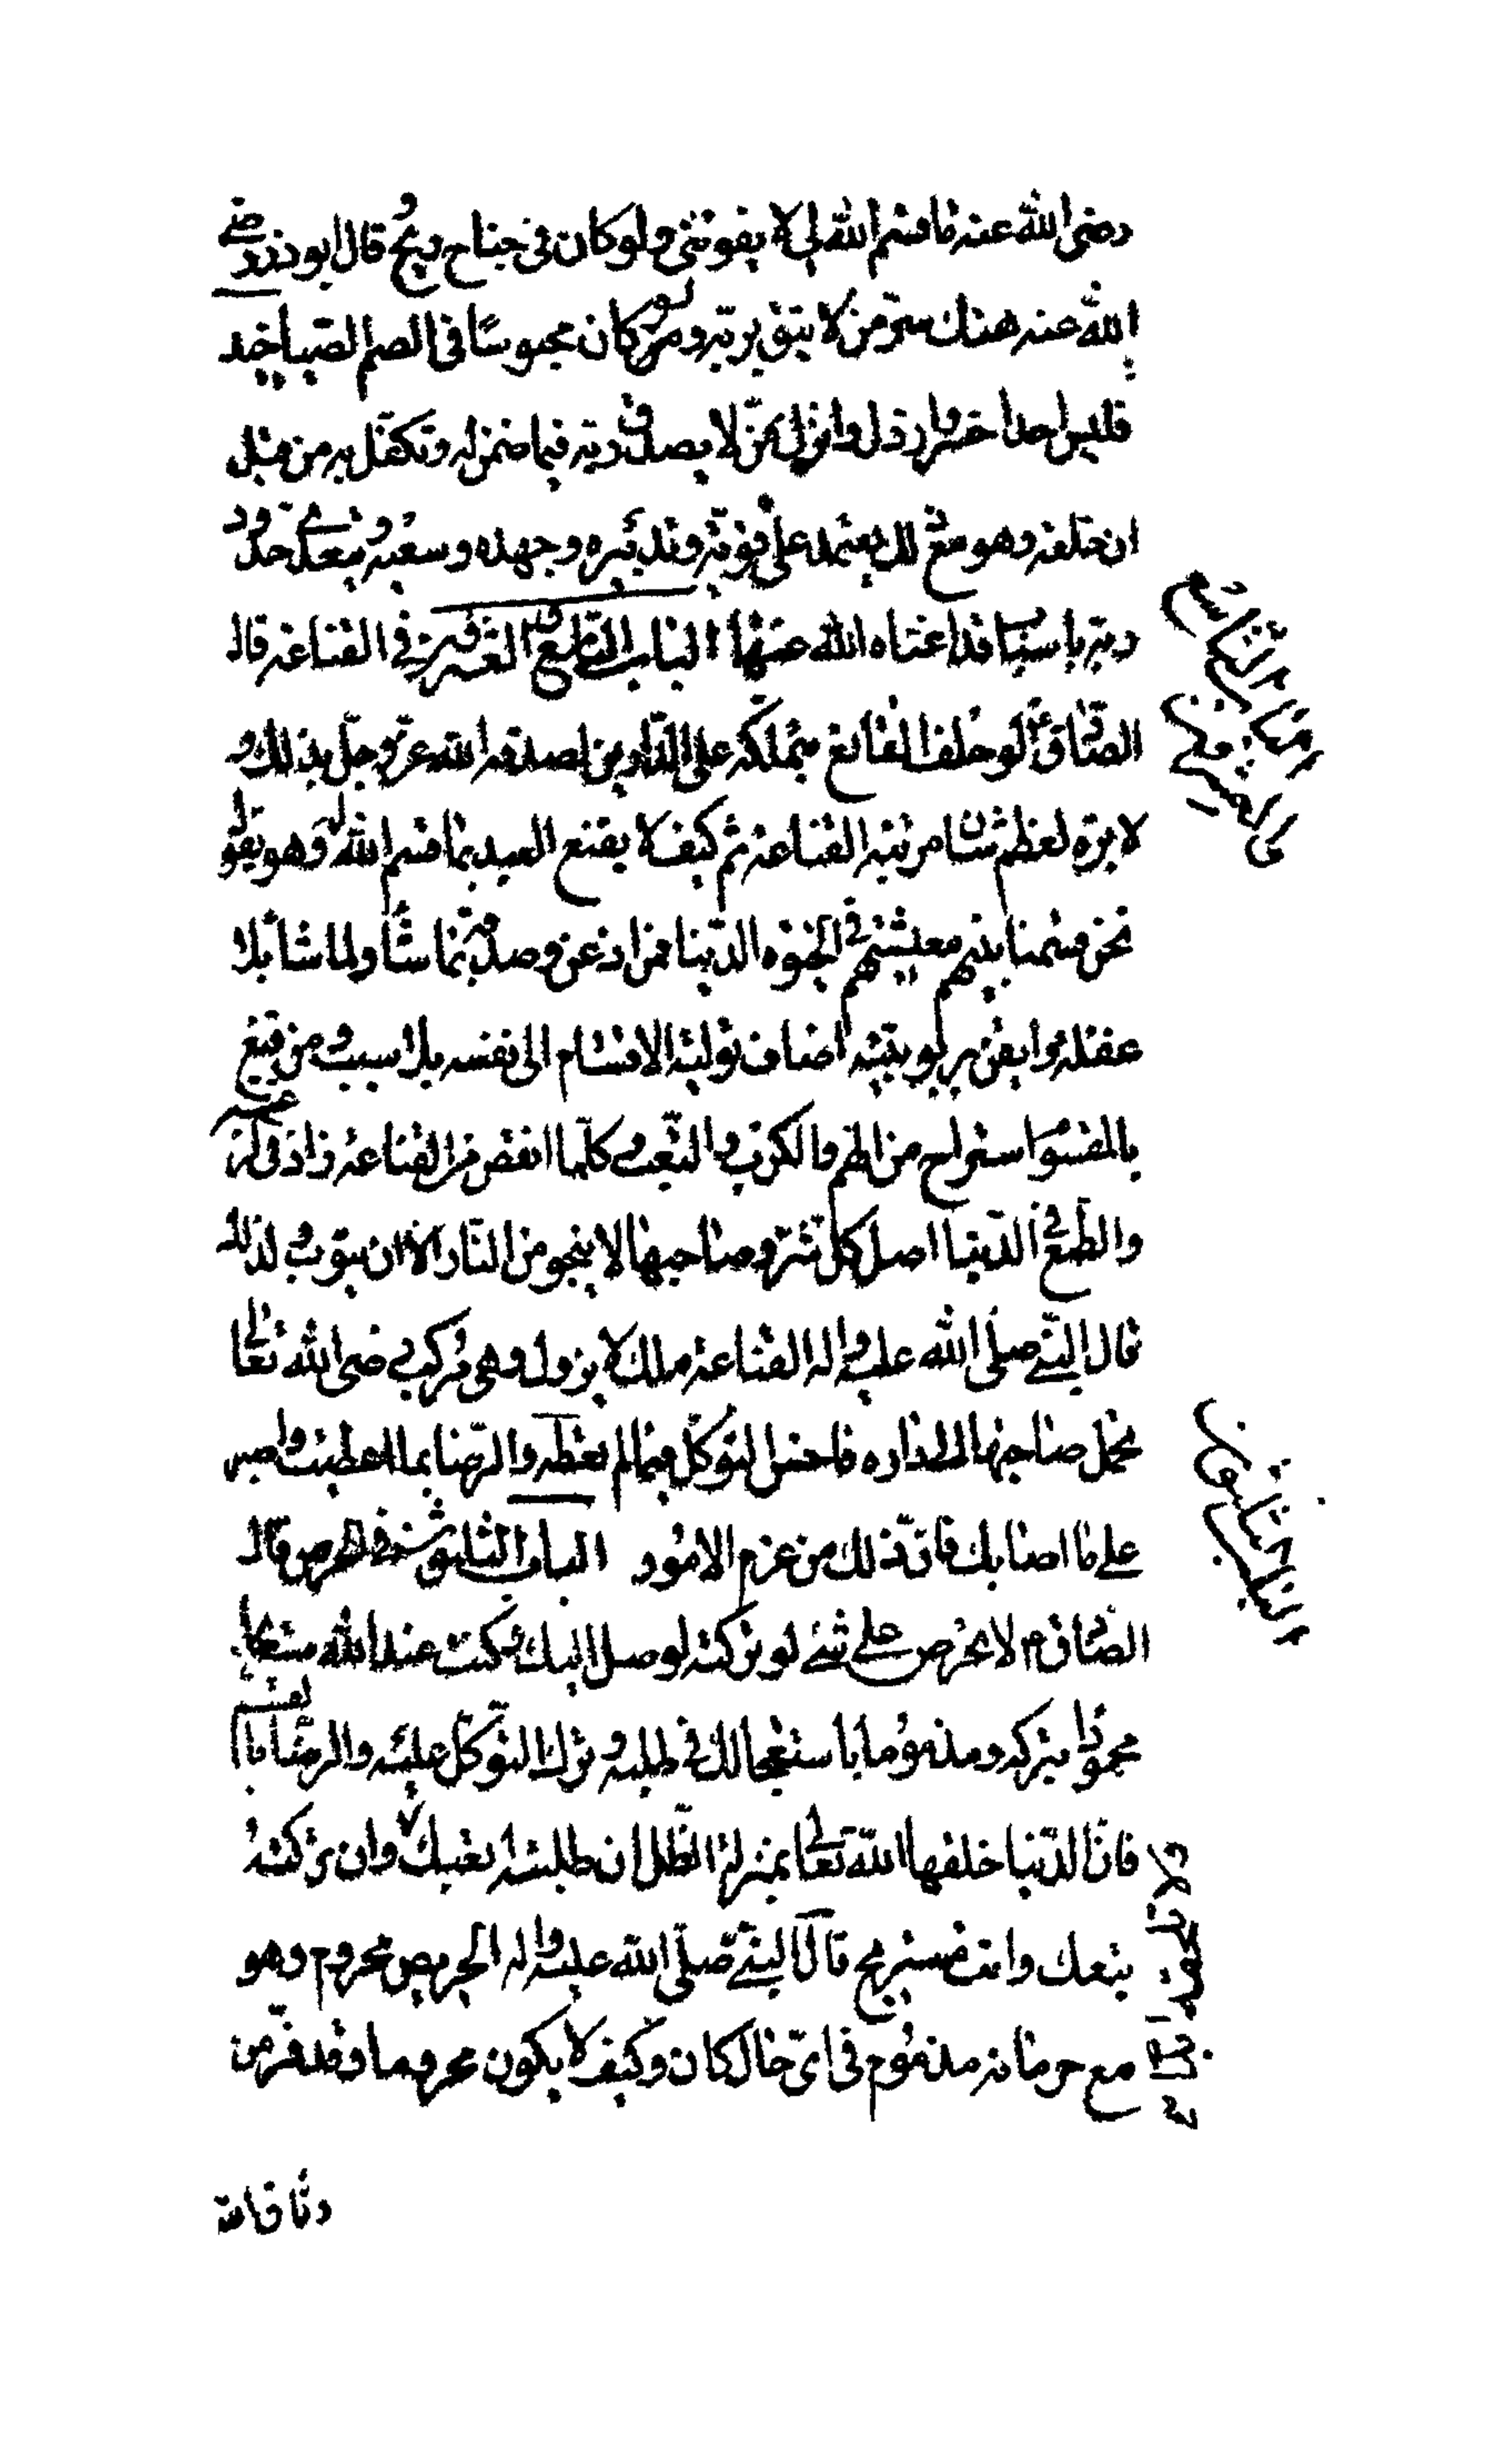 رضى الله عنه ما قسم الله لى لا يفوتنى ولو كان فى جناح ريح قال ابوذر رضى
الله عنه هتك ستر من لا يثق بربه ولو كان محبوسا فى الصم الصياخيد
فليس احد اخسر وارذل وانزل ممن لا يصدق ربه فيما ضمن له وتكفل به من قبل
ان خلقه وهو مع ذلك يعتمد على قوته وتدبيره وجهده وسعيه ويتعدى حدود
ربه باسباب قد اغناه الله عنها الباب التاسع والعشرون فى القناعة قال
الصادق ع لو حلف القانع بتملكه على الدارين لصدقه الله عز وجل بذلك و
لابره لعظم شان مرتبة القناعة ثم كيف لا يقنع العبد بما قسم الله له وهو يقول
نحن قسمنا بينهم معيشتهم فى الحيوة الدنيا فمن اذعن وصدقه بما شاء ولما شاء بلا
غفلة وايقن بربوبيته اضاف تولية الاقسام الى نفسه بلا سبب ومن قنع
بالمقسوم استراح من الهم والكرب والتعب وكلما انقص من القناعة زاد فى الرغبة
والطمع فى الدنيا اصل كل شر وصاحبها لا ينجو من النار الا ان يتوب لذلك
قال النبى صلى الله عليه واله القناعة ملك لا يزول وهى مركب رضى الله تعالى
تحمل صاحبها الى داره فاحسن التوكل فيما لم تعطه والرضا بما اعطيت واصبر
على ما اصابك فان ذلك من عزم الامور الباب الثلاثون فى الحرص قال
الصادق ع لا تحرص على شئ لو تركته لوصل اليك وكنت عند الله مستريحا
محمودا بتركه ومذموما باستعجالك فى طلبه وترك التوكل عليه والرضا بالقسم
فان الدنيا خلقها الله تعالى بمنزلة الظل ان طلبته اتعبك وان تركته
يتبعك وانت مستريح قال النبى صلى الله عليه واله الحريص محروم وهو
مع حرمانه مذموم فى اى حال كان وكيف لا يكون محروما وقد فر من
وثاق الله